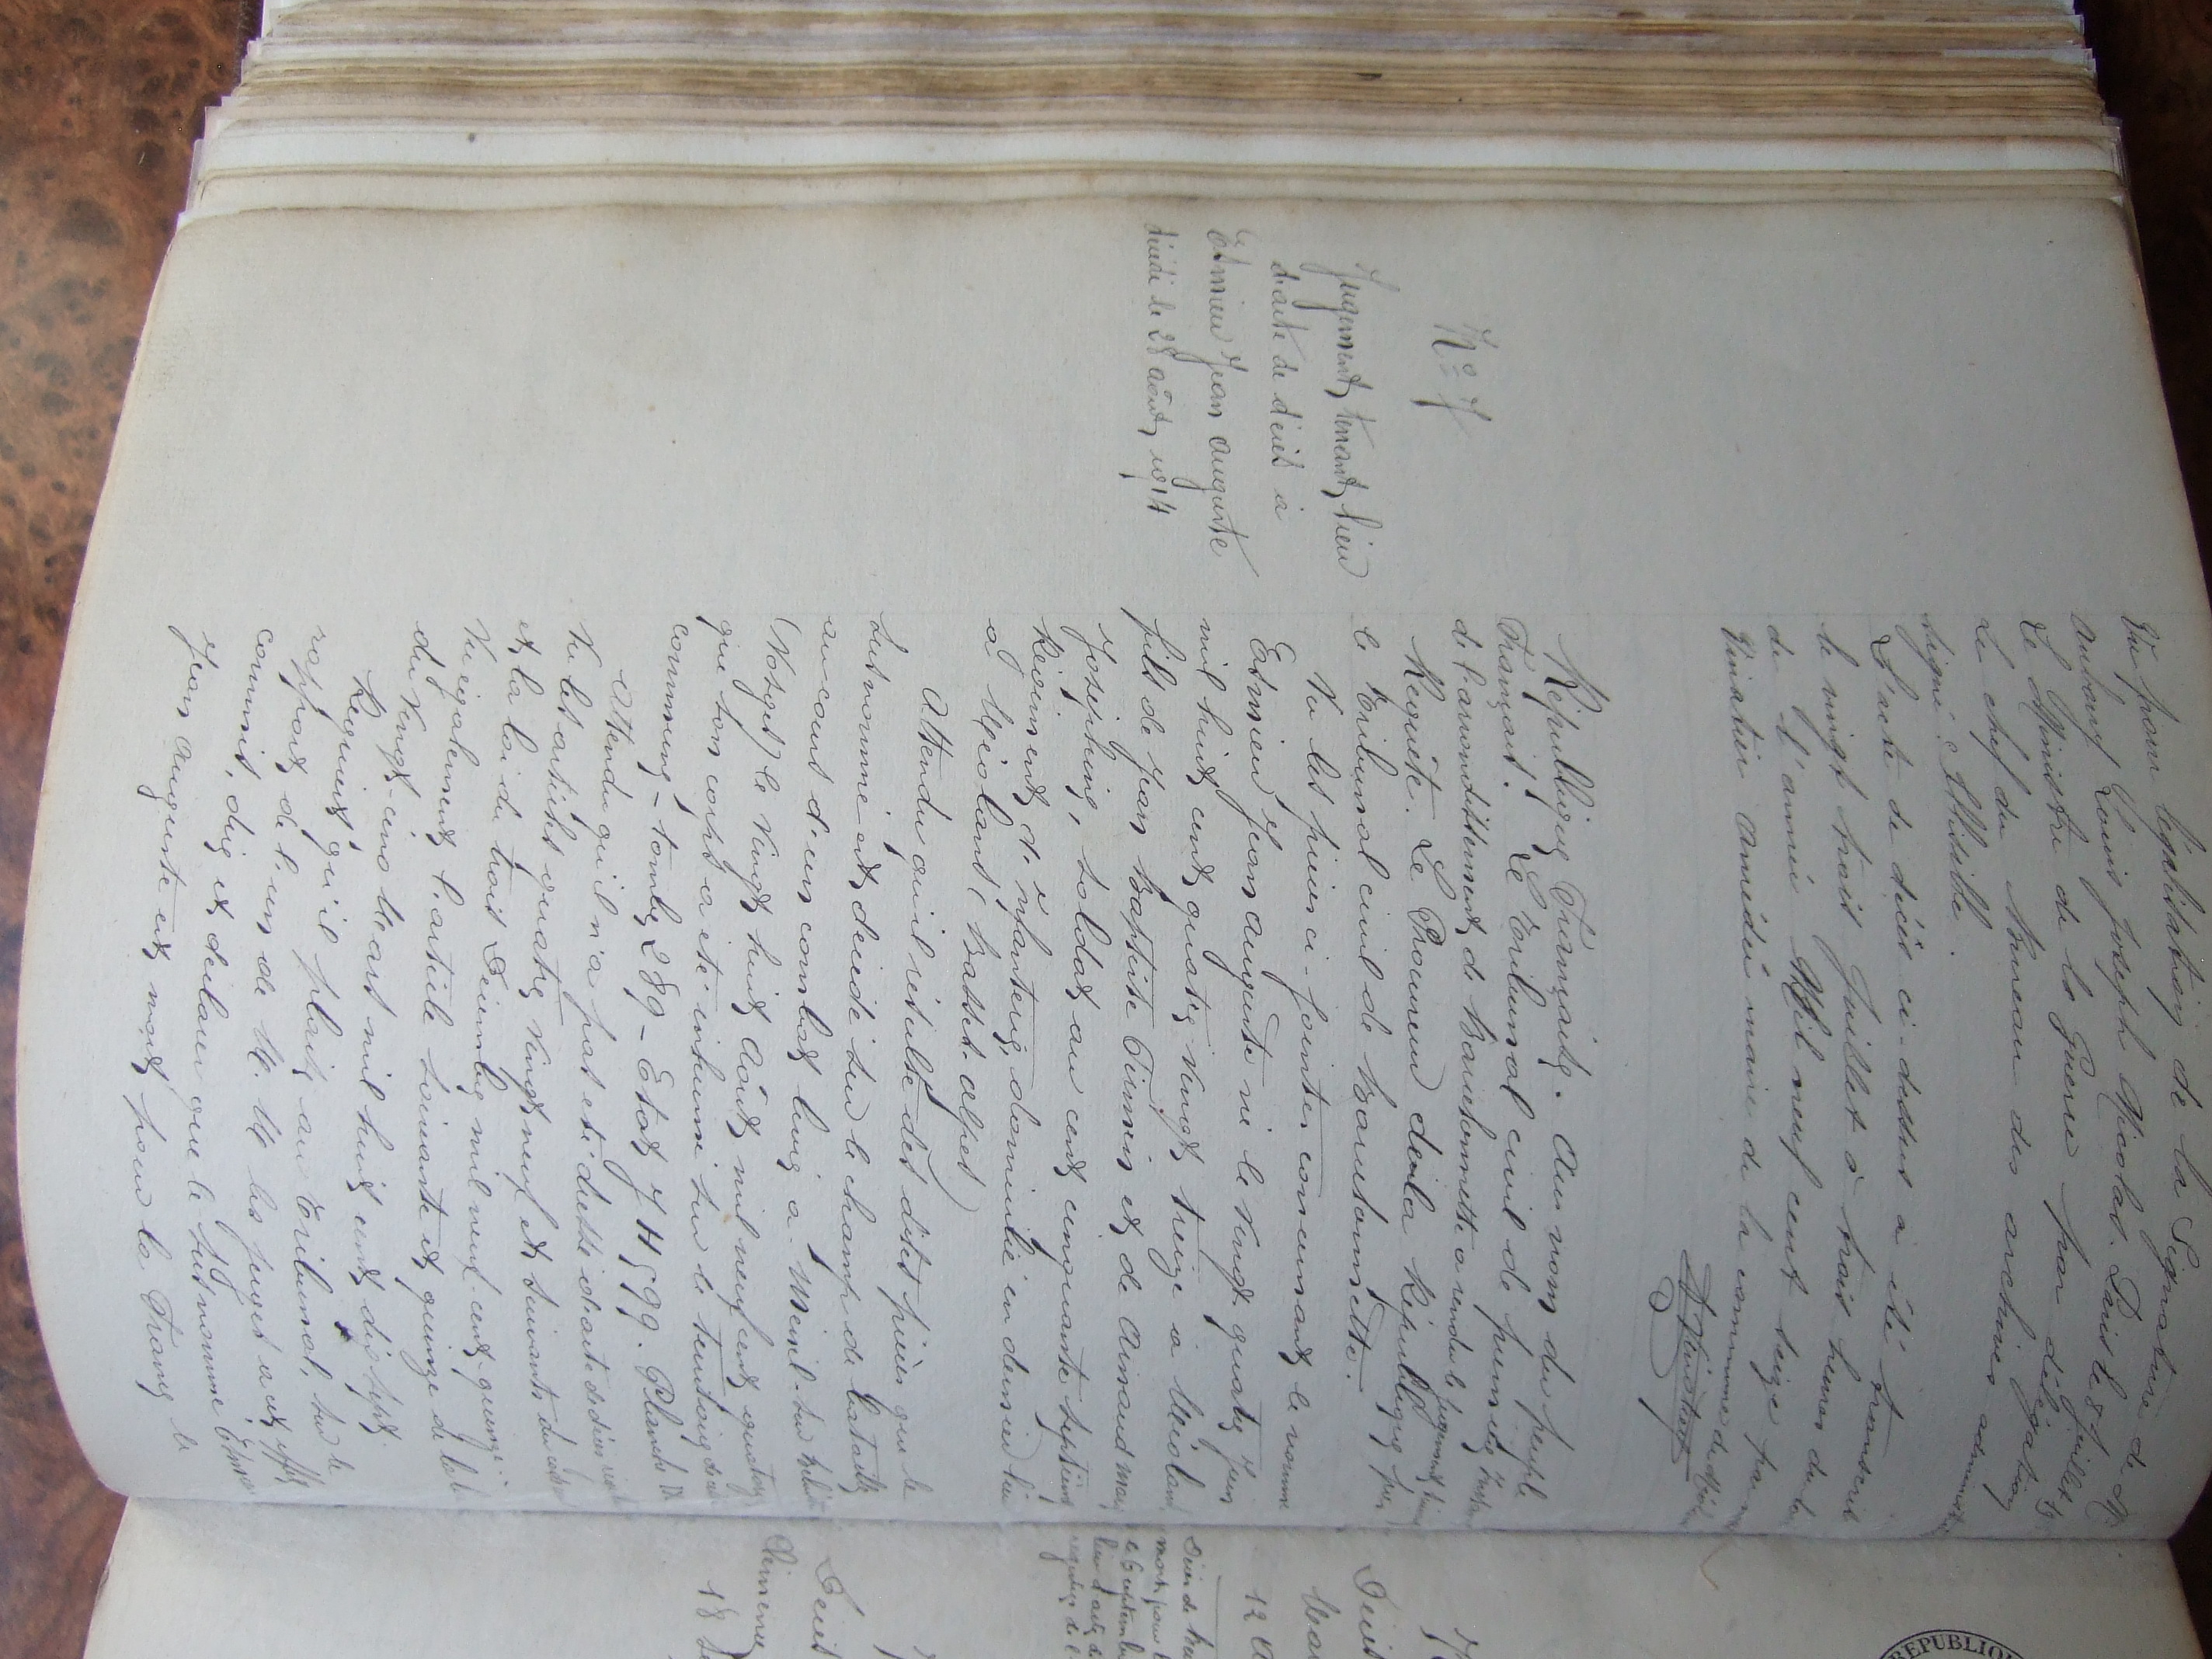 Vu pour légalisation de la Signature de M
Aubouy Louis Joseph Nicolas. Paris le 8 juillet
Le Ministre de la Guerre par délégation
Le chef du Bureau des archives
signé:
L'acte de décès ci-dessus a été transcrit
le vingt trois Juillet à trois heures du
de l'année Mil neuf cent seize par
Amédée maire de la commune de
N° 7
Jugement tenant lieu
d'acte de décès à
Etmieu Jean Auguste
décédé le 28 août 1914
République Française. Au nom du peuple
Français. Le Tribunal civil de première
de l'arrondissement de Barcelonnette a rendu le jugement
Requête. Le Procureur de la République près
le Tribunal civil de Barcelonnette.
Vu les pièces ci-jointes concernant le nommé
Etmieu Jean Auguste né le vingt quatre Juin
mil huit cent quatre vingt treize à Méolans
fils de Jean Baptiste Firmin et de Arnaud
Joséphine, soldat au cent cinquante septième
Régiment d'infanterie, domicilié en dernier lieu
à Méolans (Basses-Alpes)
Attendu qu'il résulte des dites pièces que le
susnommé est décédé sur le champ de bataille
au cours d'un combat livré à Mesnil-sur-Belvitte
(Vosges) le vingt huit Août mil neuf cent quatorze
que son corps a été inhumé sur le territoire de
commune - tombe 289 - Etat 7 H 599. Planche IX
Attendu qu'il n'a pas été dressé d'acte de décès
Vu les articles quatre vingt neuf et suivants du code
et la loi du trois Décembre mil neuf cent quinze
Vu également l'article soixante et quinze de la
du vingt-cinq Mars mil huit cent dix sept.
Requiert qu'il plaise au Tribunal, sur le
rapport de l'un de M. M les juges à cet effet
commis, dire et déclarer que le susnommé Etmieu
Jean Auguste est mort pour la France le
Décès
12
Décès
18
REPUBLIQ